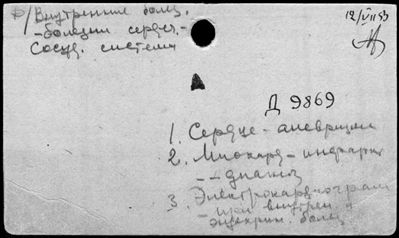 Б/Внутренние болез.
- болезни сердеч.-
Сосуд. системы
12/VII 53
Д 9869
1. Сердце - аневризма
2. Миокард - инфаркт
- - диагноз
3. Электрокардиограмма
- при внутрен. и
эндокрин. болез.